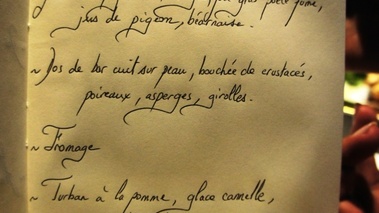 jus de pigeon, béarnaise.
~ Dos de bar cuit sur peau, bouchée de crustacés,
poireaux, asperges, girolles.
~ Fromage
~ Turban à la pomme, glace canelle,